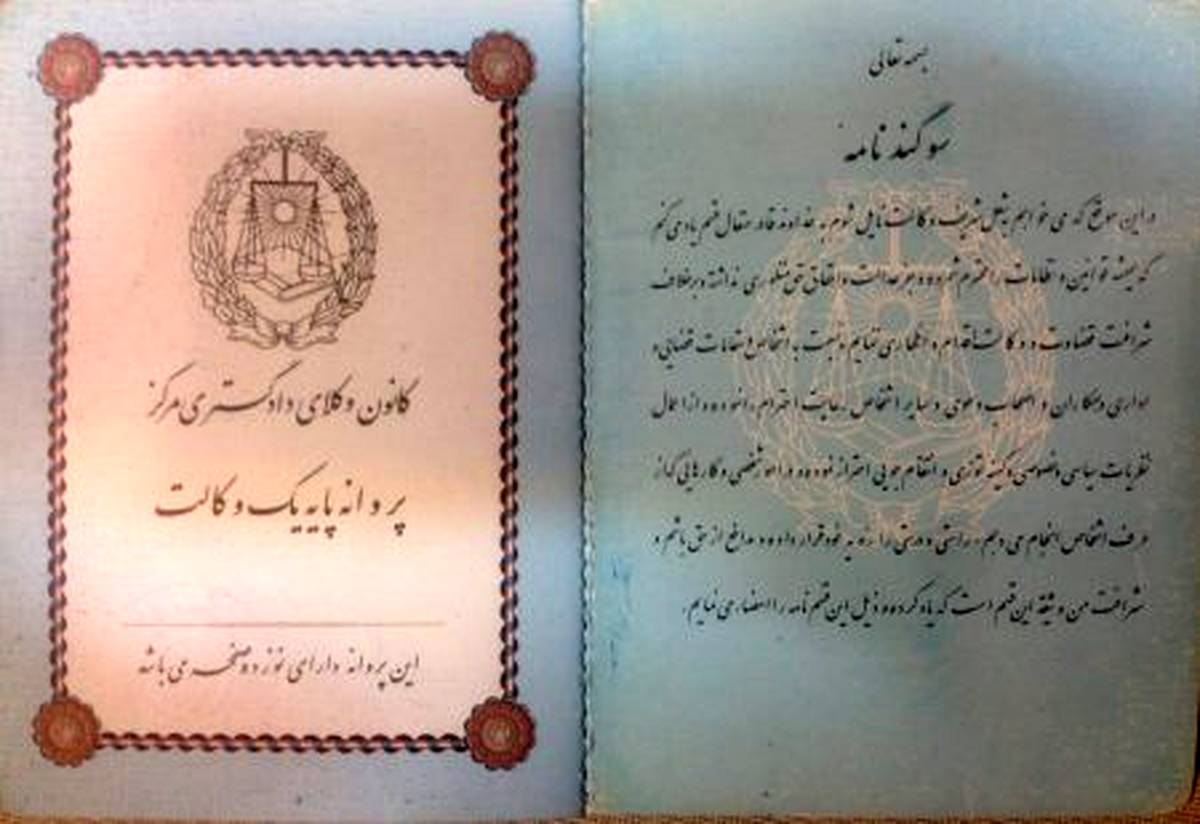 بسمه تعالی
سوگند نامه
در این موقع که می خواهم بشغل شریف وکالت نایل شوم به خداوند قادر متعال قسم یاد می کنم
که همیشه قوانین و نظامات را محترم شمرده و جز عدالت و احقاق حق منظوری نداشته و برخلاف
شرافت قضاوت و وکالت اقدام و اظهاری ننمایم و نسبت به اشخاص و مقامات قضایی و
اداری و همکاران و اصحاب دعوی و سایر اشخاص رعایت احترام را نموده و از اعمال
نظریات سیاسی و خصوصی و کینه توزی و انتقام جویی احتراز نموده و در امور شخصی و کارهایی که از
طرف اشخاص انجام می دهم، راستی و درستی را رویه خود قرار داده و مدافع از حق باشم و
شرافت من وثیقه این قسم است که یاد کرده و ذیل این قسم نامه را امضاء می نمایم.
کانون وکلای دادگستری مرکز
پروانه پایه یک وکالت
این پروانه دارای نوزده صفحه می باشد